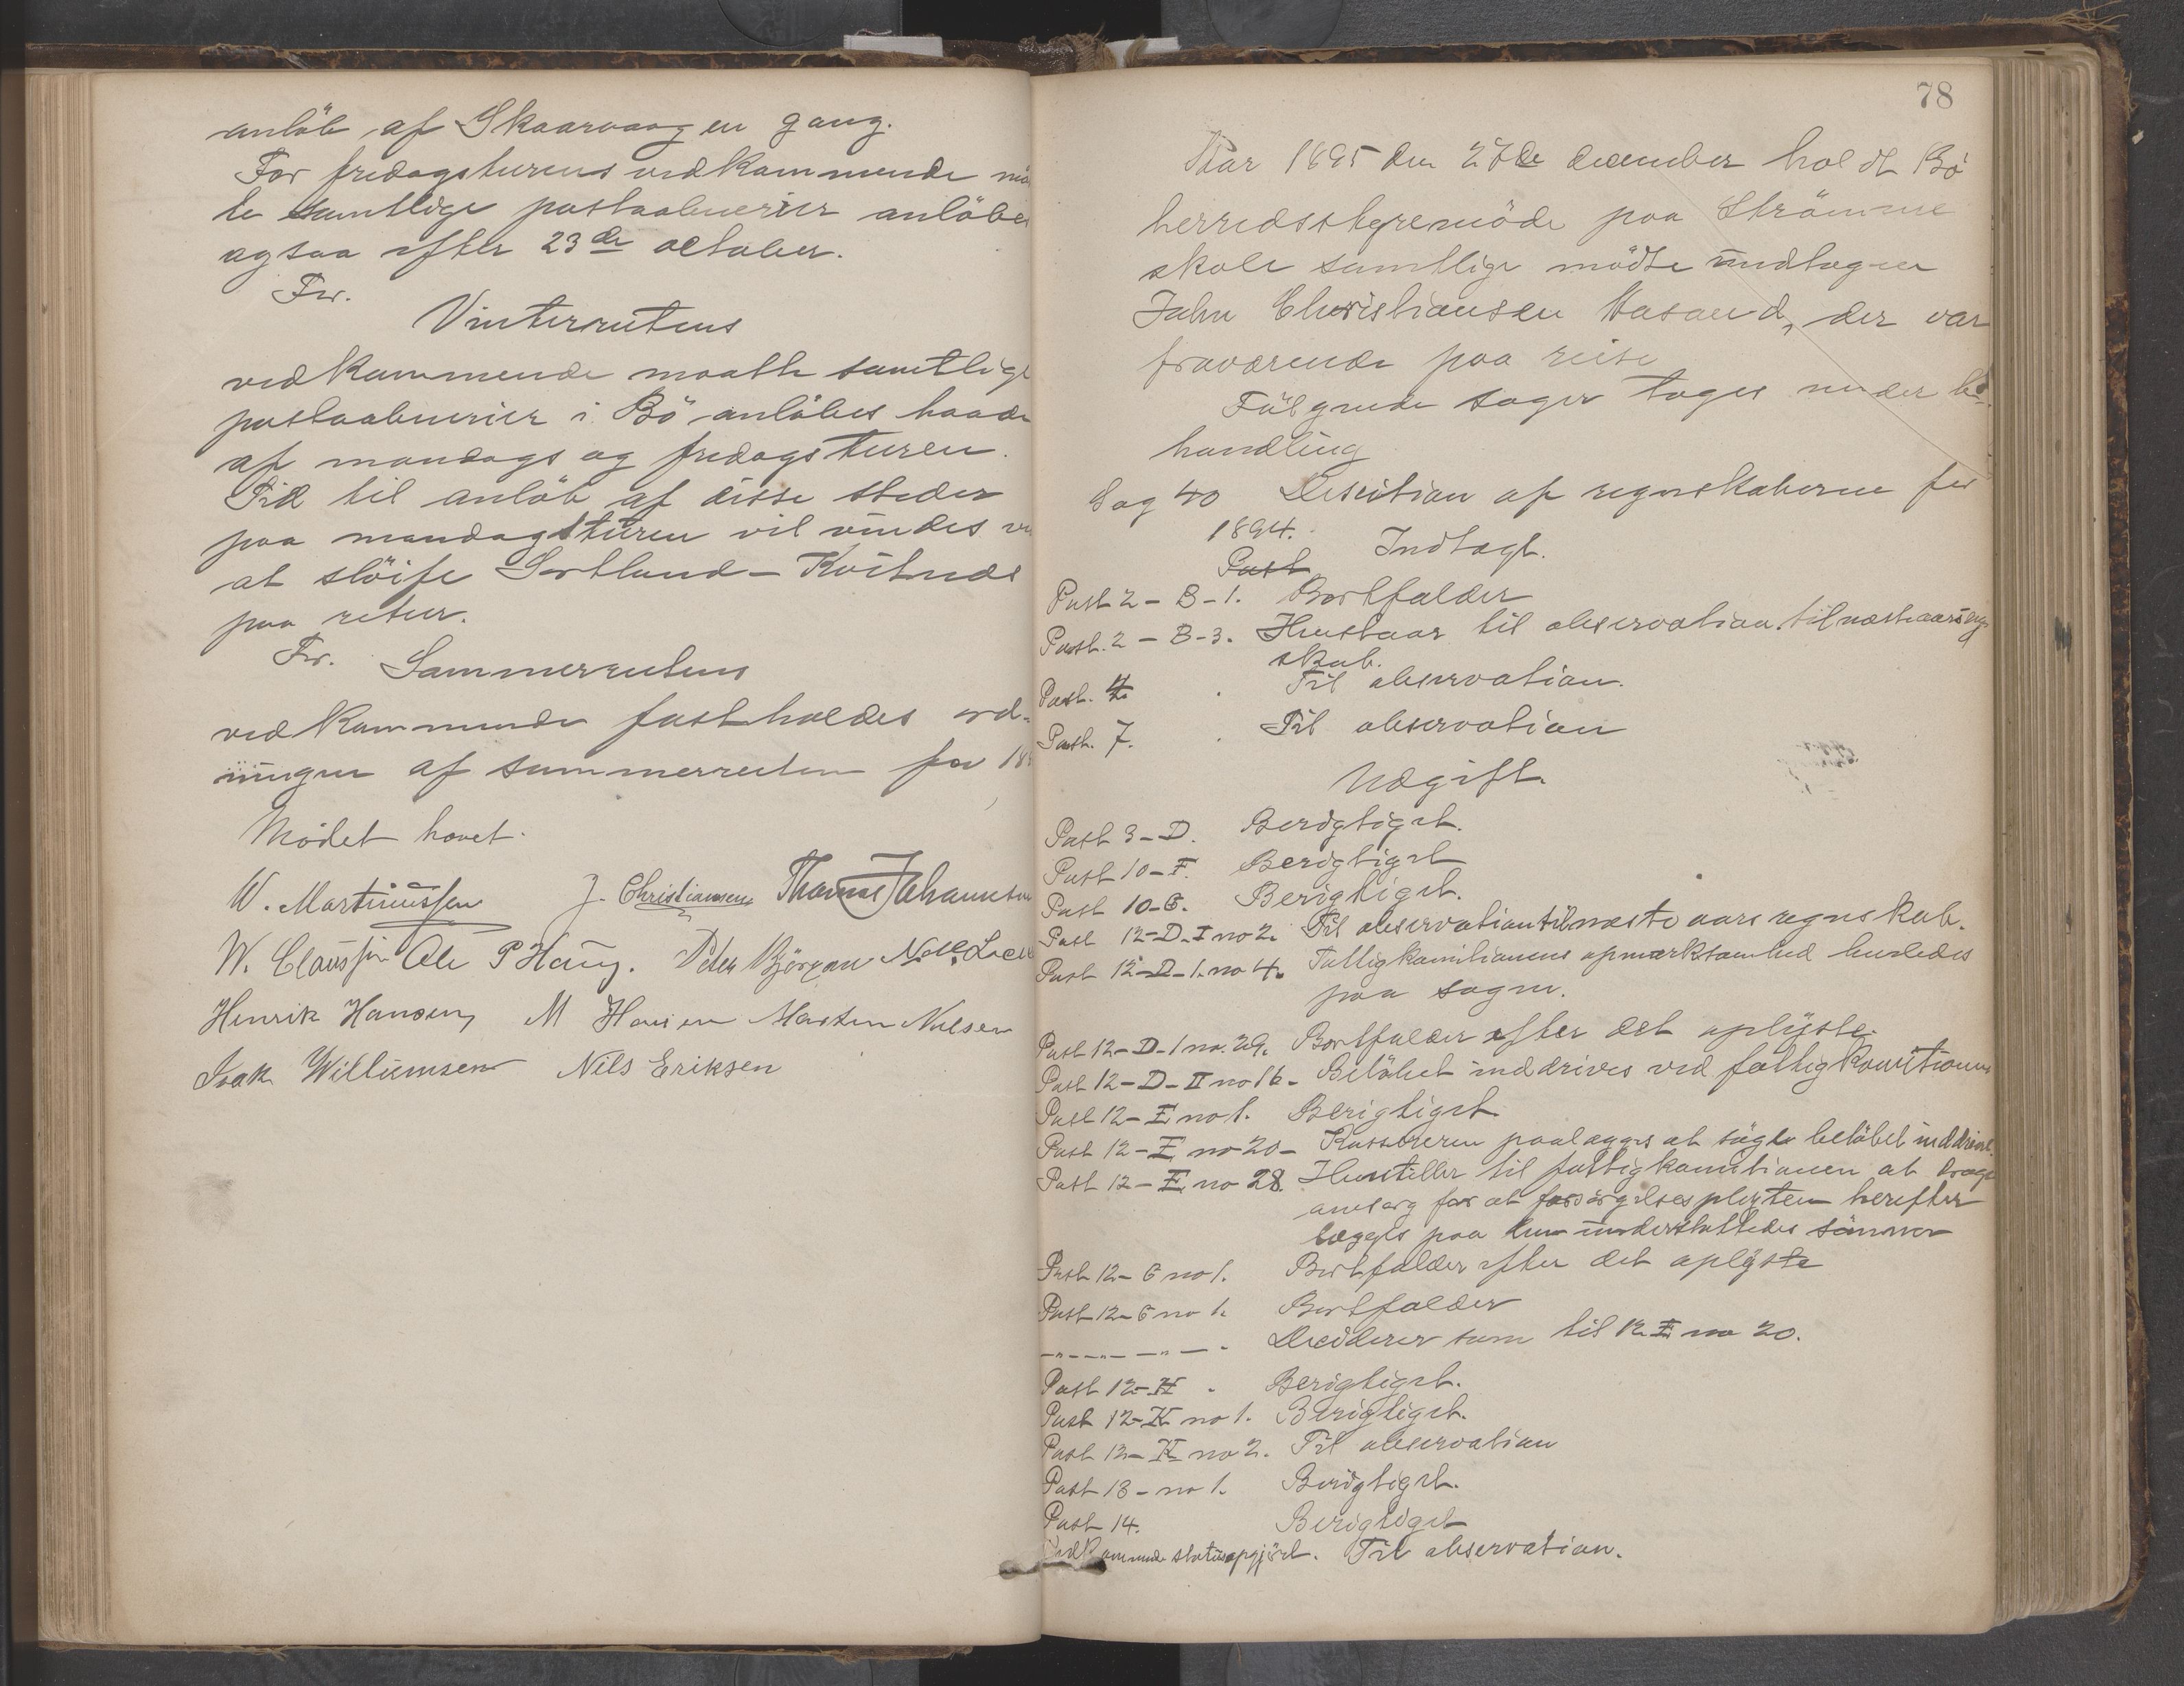 anløb af Skaarvaagen gang.
For fredagsturens vedkommende maa
te samtlige postaabnerier anløbes
ogsaa efter 23de october.
For.
Vinterrutens
vedkommende maatte samtlige
postaabnerier i Bö anløbes baade
af mandags og fredagsturen.
Tid til anløb af disse steder
paa mandagsturen vil vindes ve
at sløife Sortland - Kvitnes
paa retur.
For. Sommerrutens
vedkommende fastholdes ord-
ningen af sommerruten for 18
Mödet hævet.
W. Martinussen J. Christiansen Thomas Johannesen
W. Claussen Ole P Haug. Peter Björgan
Henrik Hansen M Hansen Marten Nilsen
Isak Willumsen Nils Eriksen
78
Aar 1895 den 27de december holdt Bö
herredsstyremöde paa Strömme
skole samtlige mödte undtagen
John Christiansen Vasand, der var
fraværende paa reise
Fölgende sager toges under be-
handling
Sag 40 Desission af regnskaberne for
1894.
Post Indtægt.
Post 2 - B - 1. Bortfalder
Post. 2 - B - 3. Henstaar til observation til næste aars regn
skab.
Post. 4. Til observation.
Post. 7. Til observation
Udgift.
Post 3 - D. Berigtiget.
Post 10 - F. Berigtiget
Post 10 - G. Berigtiget.
Post 12 - D - I no 2. Til observation til næste aars regnskab.
Post 12 - D - 1. no 4. Fattigkomitionens opmærksomhed henledes
paa sagen.
Post 12 - D - 1 no. 29. Bortfalder efter det oplyste.
Post 12 - D - II no 16 - Belöbet inddrives ved fattigkomitionen
Post 12 - E no 1. Berigtiget
Post 12 - E no 20 - Kassereren paalægges at söge belöbet inddrevet.
Post 12 - E no 28. Henstiller til fattigkomitionen at drage
omsorg for at forsörgelsesplygten herefter
lægges paa den understöttedes sönner
Post 12 - G no 1. Bortfalder efter det oplyste
Post 12 - G no 1. Bortfalder
- " - - " - - " - . Desiderer som til 12 E no 20.
Post 12 - H . Berigtiget.
Post 12 - K no 1. Berigtiget.
Post 12 - K no 2. Til observation
Post 13 - no 1. Berigtiget.
Post 14. Berigtiget
Vedkommende statusopgjörel. Til observation.